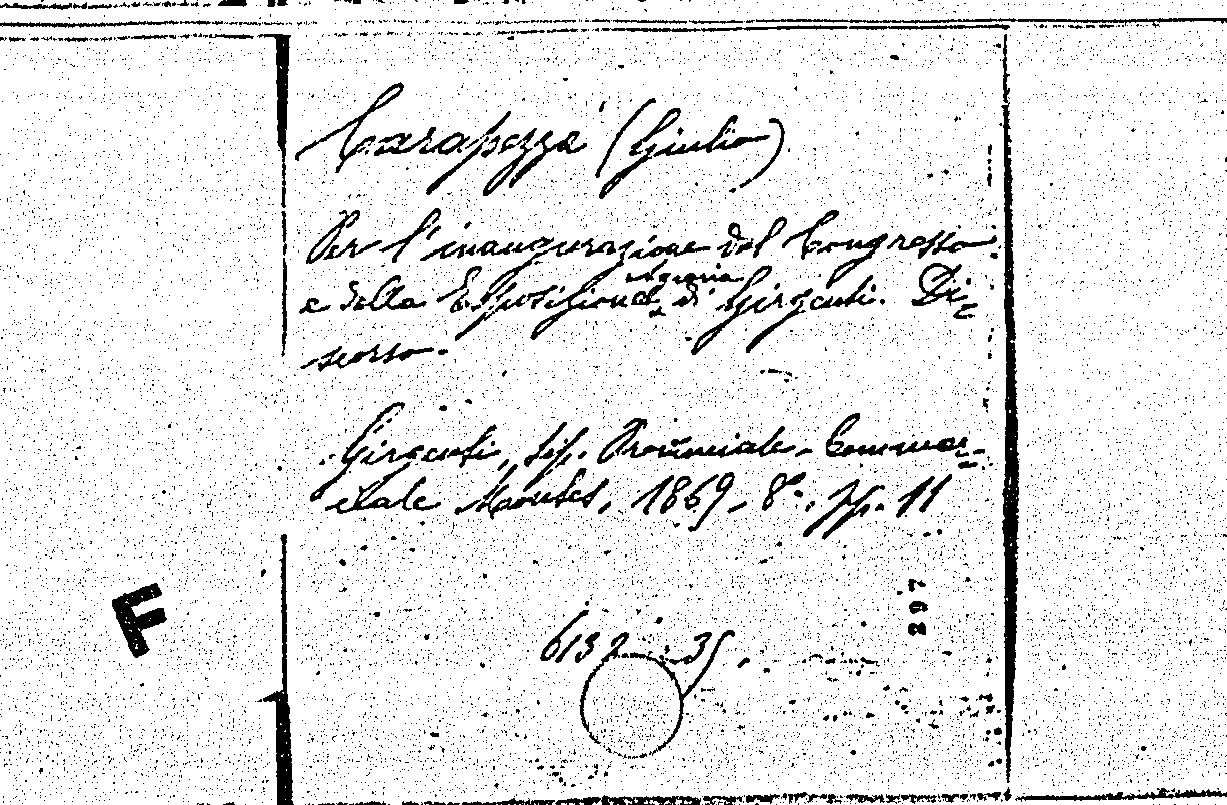 Carapezza (Giulio)
Per l'inaugurazione del Congresso
e della Esposizione agraria di Girgenti. Di-
scorso.
Girgenti, tip. Provinciale-Commer-
ciale Montes, 1869, 8°. pp. 11
F
297
6132 35.